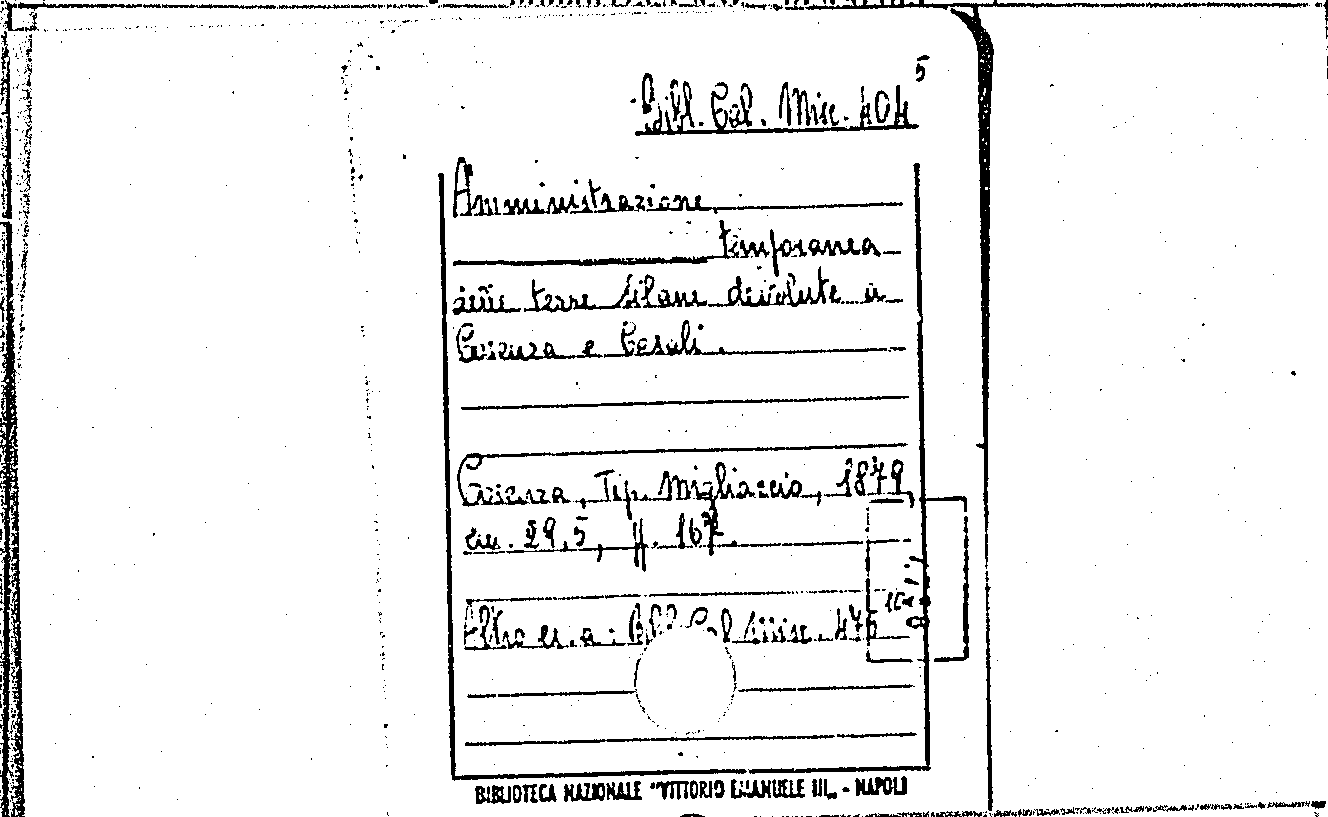 5
Bibl. Cal. Misc. 404
Amministrazione
temporanea
delle terre silane devolute a
Cosenza e Casali.
Cosenza, Tip. Migliaccio, 1879
cm. 29,5, pp. 167.
Altro es. a: Bibl. Cal. Misc. 475
BIBLIOTECA NAZIONALE "VITTORIO EMANUELE III„ - NAPOLI